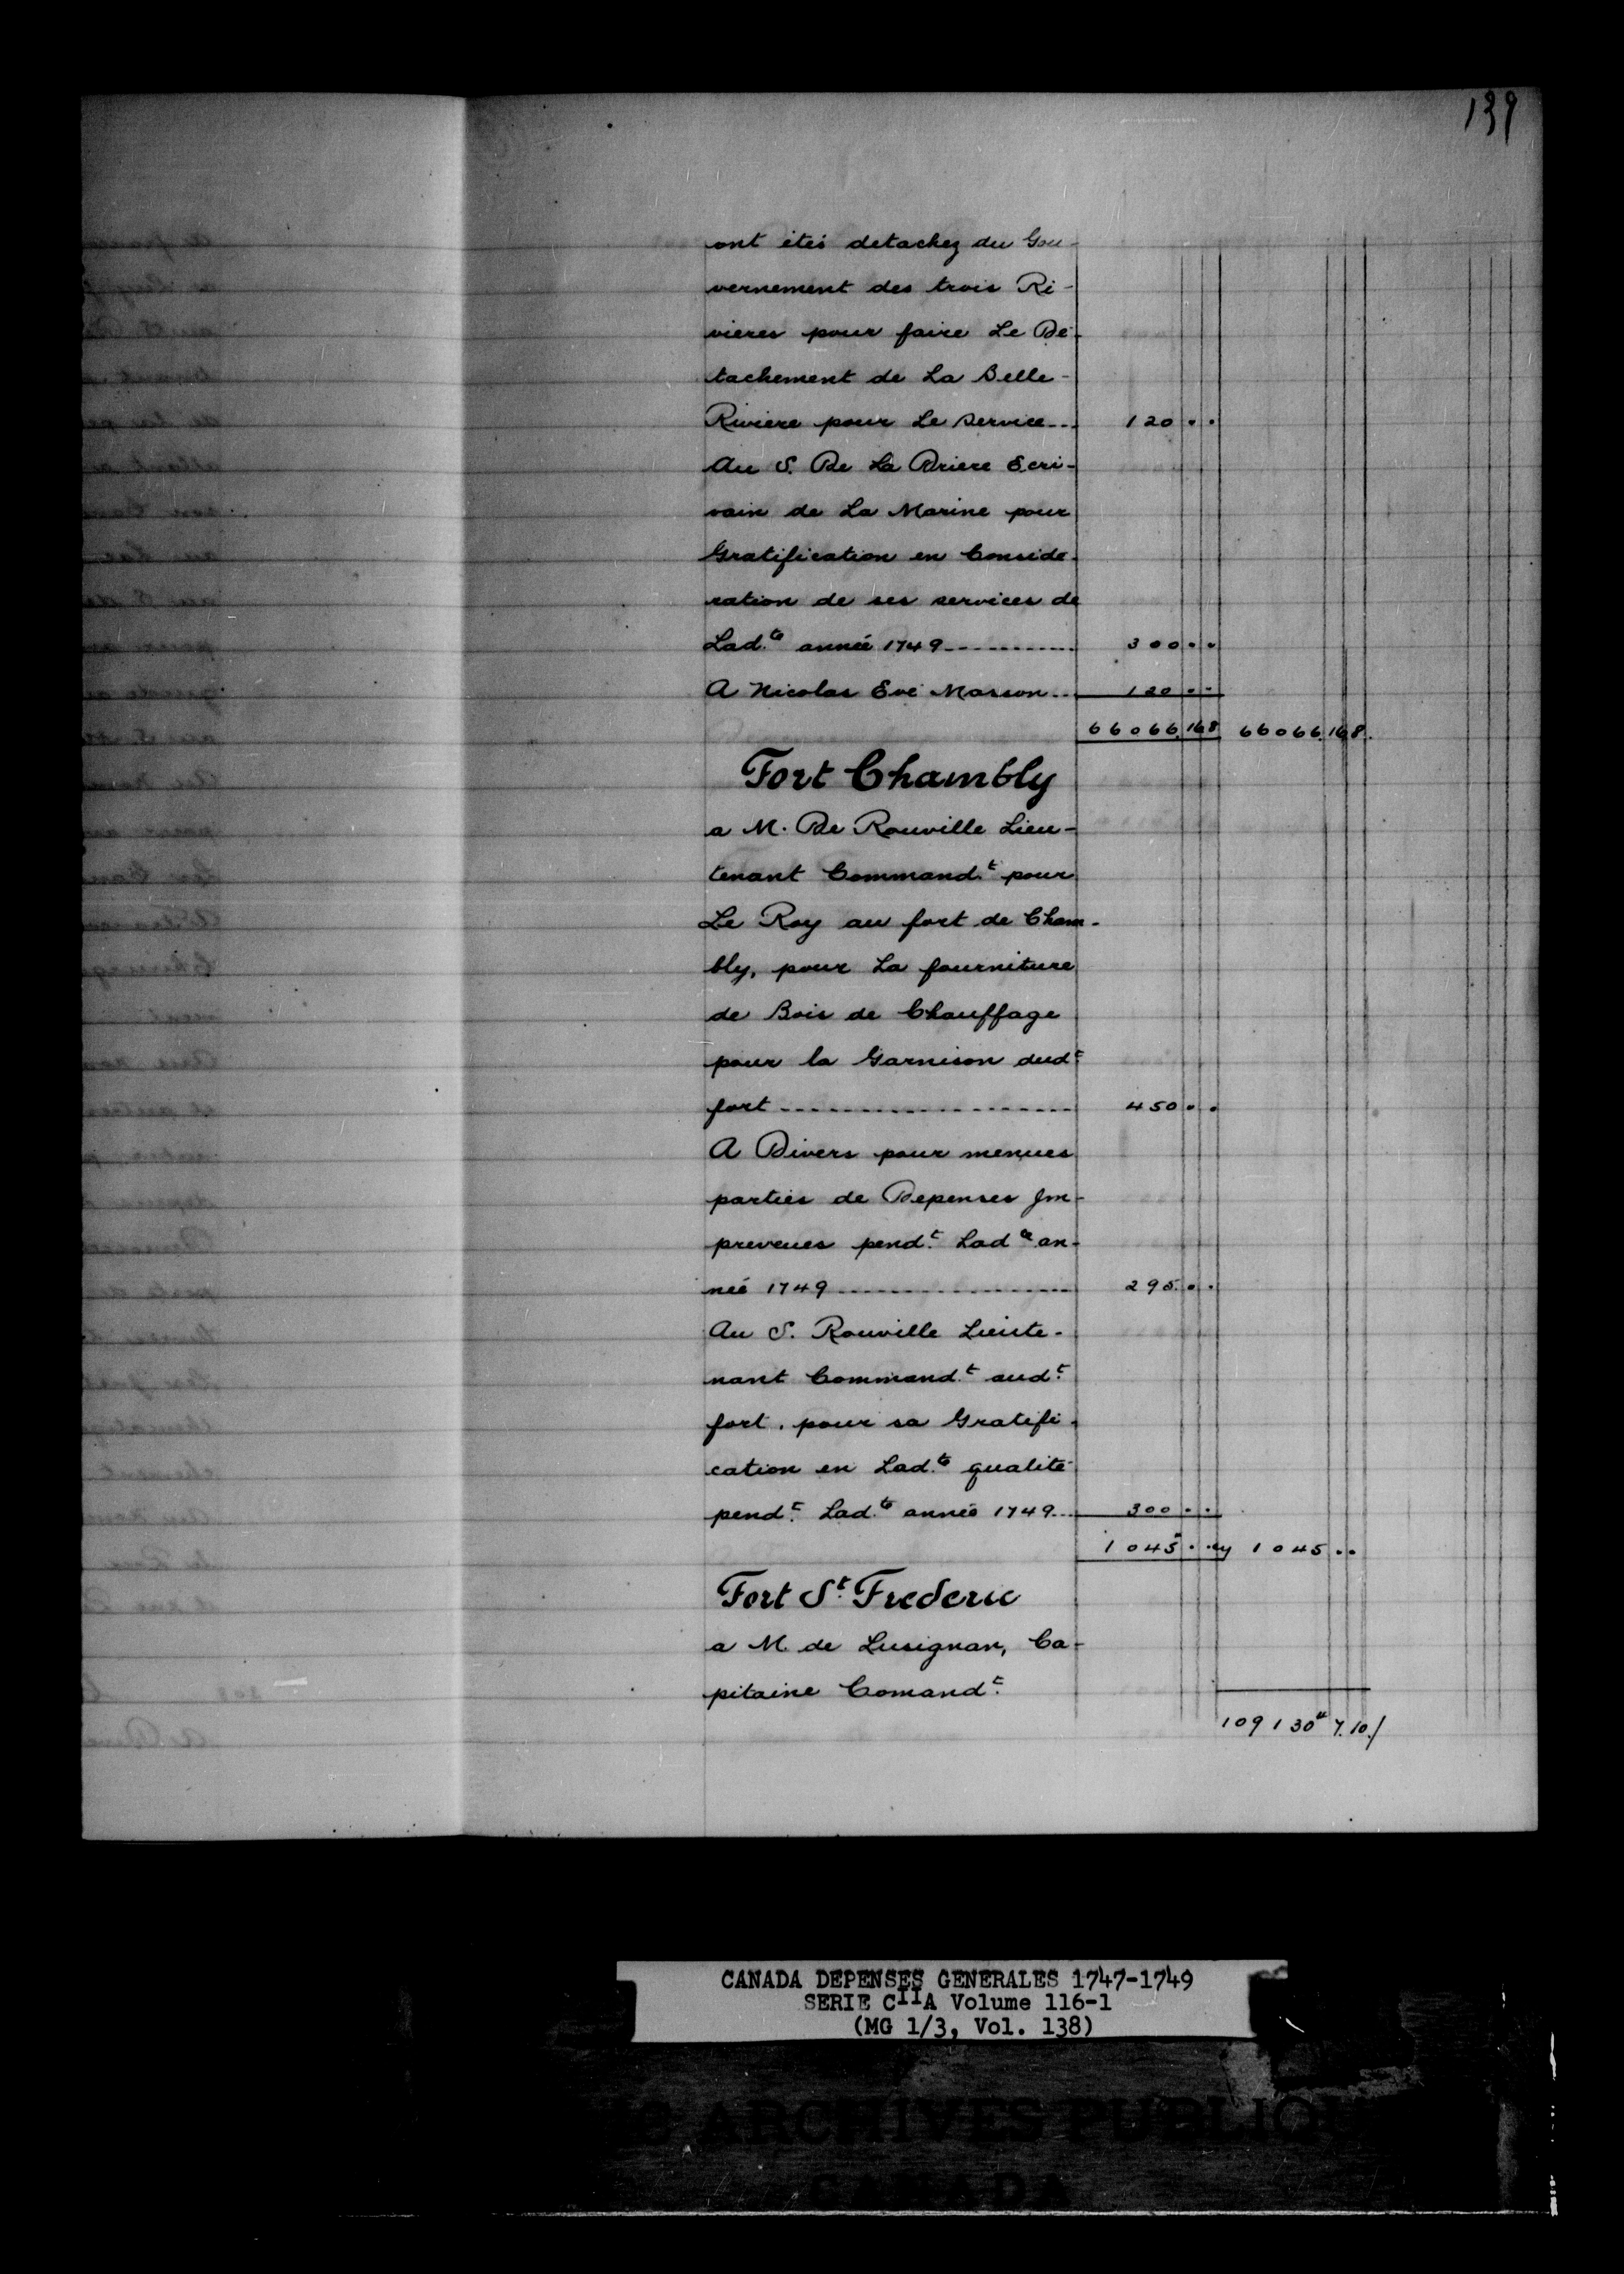 139
ont étés detachez du Gou-
vernement des trois Ri-
vieres pour faire Le De-
tachement de La Belle-
Riviere pour Le service... 120 . .
Au S. De La Briere Ecri-
vain de La Marine pour
Gratification en Conside-
ration de ses services de
Lad.te année 1749 ............ 300 . .
A Nicolas Eve Masson... 120 . .
66066.16.8 66066.16.8.
Fort Chambly
a M. De Rouville Lieu-
tenant Command.t pour
Le Roy au fort de Cham-
bly, pour La fourniture
de Bois de Chauffage
pour la Garnison dud.t
fort .................... 450 . .
A Divers pour menues
parties de Depenses Im-
preveues pend.t Lad.te an-
née 1749 .................. 295 . .
Au S. Rouville Lieute-
nant Command.t aud.t
fort, pour sa Gratifi-
cation en Lad.te qualité
pend.t Lad.te année 1749... 300 . .
1045 . . cy 1045 . .
Fort S.t Frederic
a M. de Lusignan, Ca-
pitaine Comand.t
109130# 7.10./
CANADA DEPENSES GENERALES 1747-1749
SERIE CIIA Volume 116-1
(MG 1/3, Vol. 138)
ARCHIVES PUBLIQU
CANADA